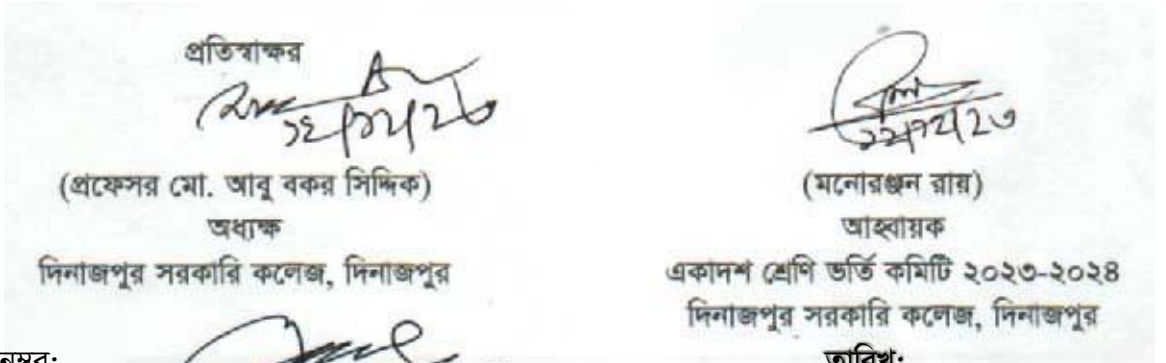 প্রতিস্বাক্ষর
(প্রফেসর মো. আবু বকর সিদ্দিক)
অধ্যক্ষ
দিনাজপুর সরকারি কলেজ, দিনাজপুর
(মনোরঞ্জন রায়)
আহ্বায়ক
একাদশ শ্রেণি ভর্তি কমিটি ২০২৩-২০২৪
দিনাজপুর সরকারি কলেজ, দিনাজপুর
তারিখ: